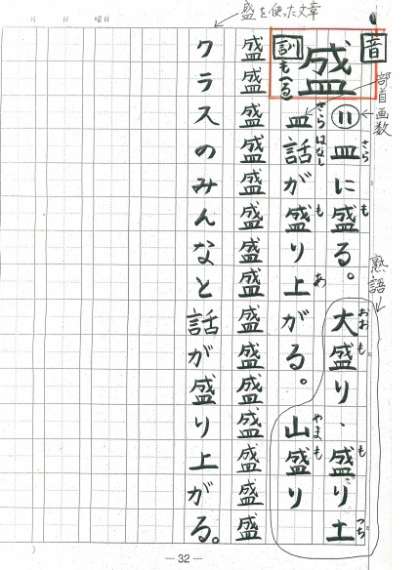 盛を使った文章
音
盛
訓
も(る)
部首
画数
熟語
⑪ 皿に盛る。大盛り、盛り土
さら も おお も も つち
皿 話が盛り上がる。山盛り
さら はなし も あ やま も
盛盛盛盛盛盛盛盛盛盛盛盛盛盛盛
クラスのみんなと話が盛り上がる。
月 日 曜日
— 32 —